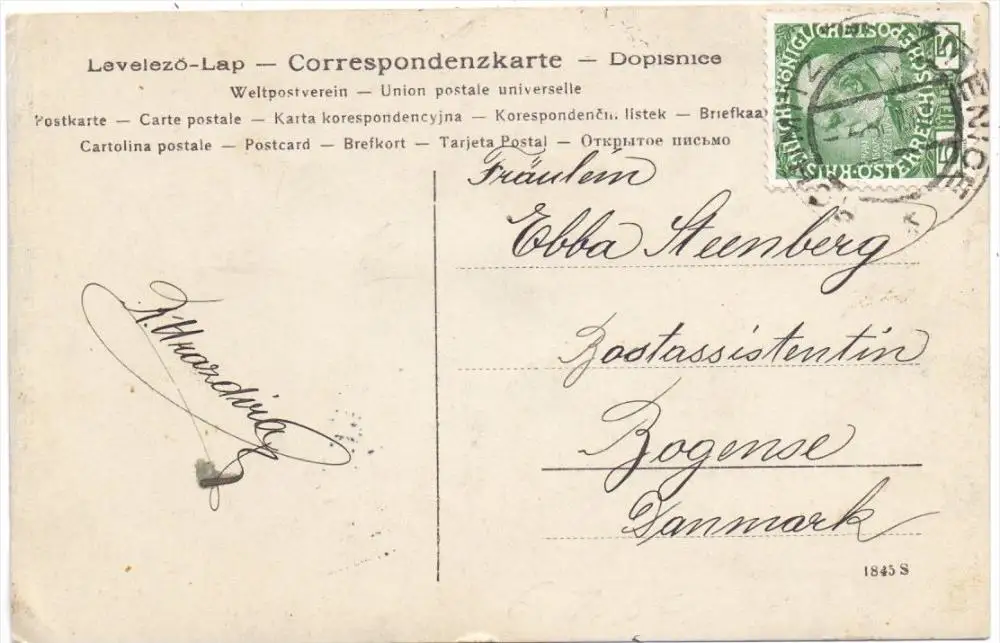 Levelező-Lap — Correspondenzkarte — Dopisnice
Weltpostverein — Union postale universelle
Postkarte — Carte postale — Karta korespondencyjna — Korespondenčn. listek — Briefkaa
Cartolina postale — Postcard — Brefkort — Tarjeta Postal — Открытое письмо
Fräulein
Ebba Steenberg
Postassistentin
Bogense
Danmark
1845 S
5
5